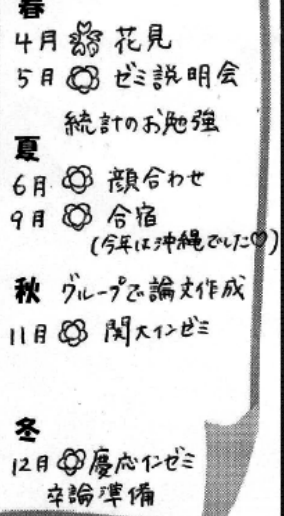 春
4月 花見
5月 ゼミ説明会
統計のお勉強
夏
6月 顔合わせ
9月 合宿
(今年は沖縄でした♡)
秋 グループで論文作成
11月 関大インゼミ
冬
12月 慶応インゼミ
卒論準備